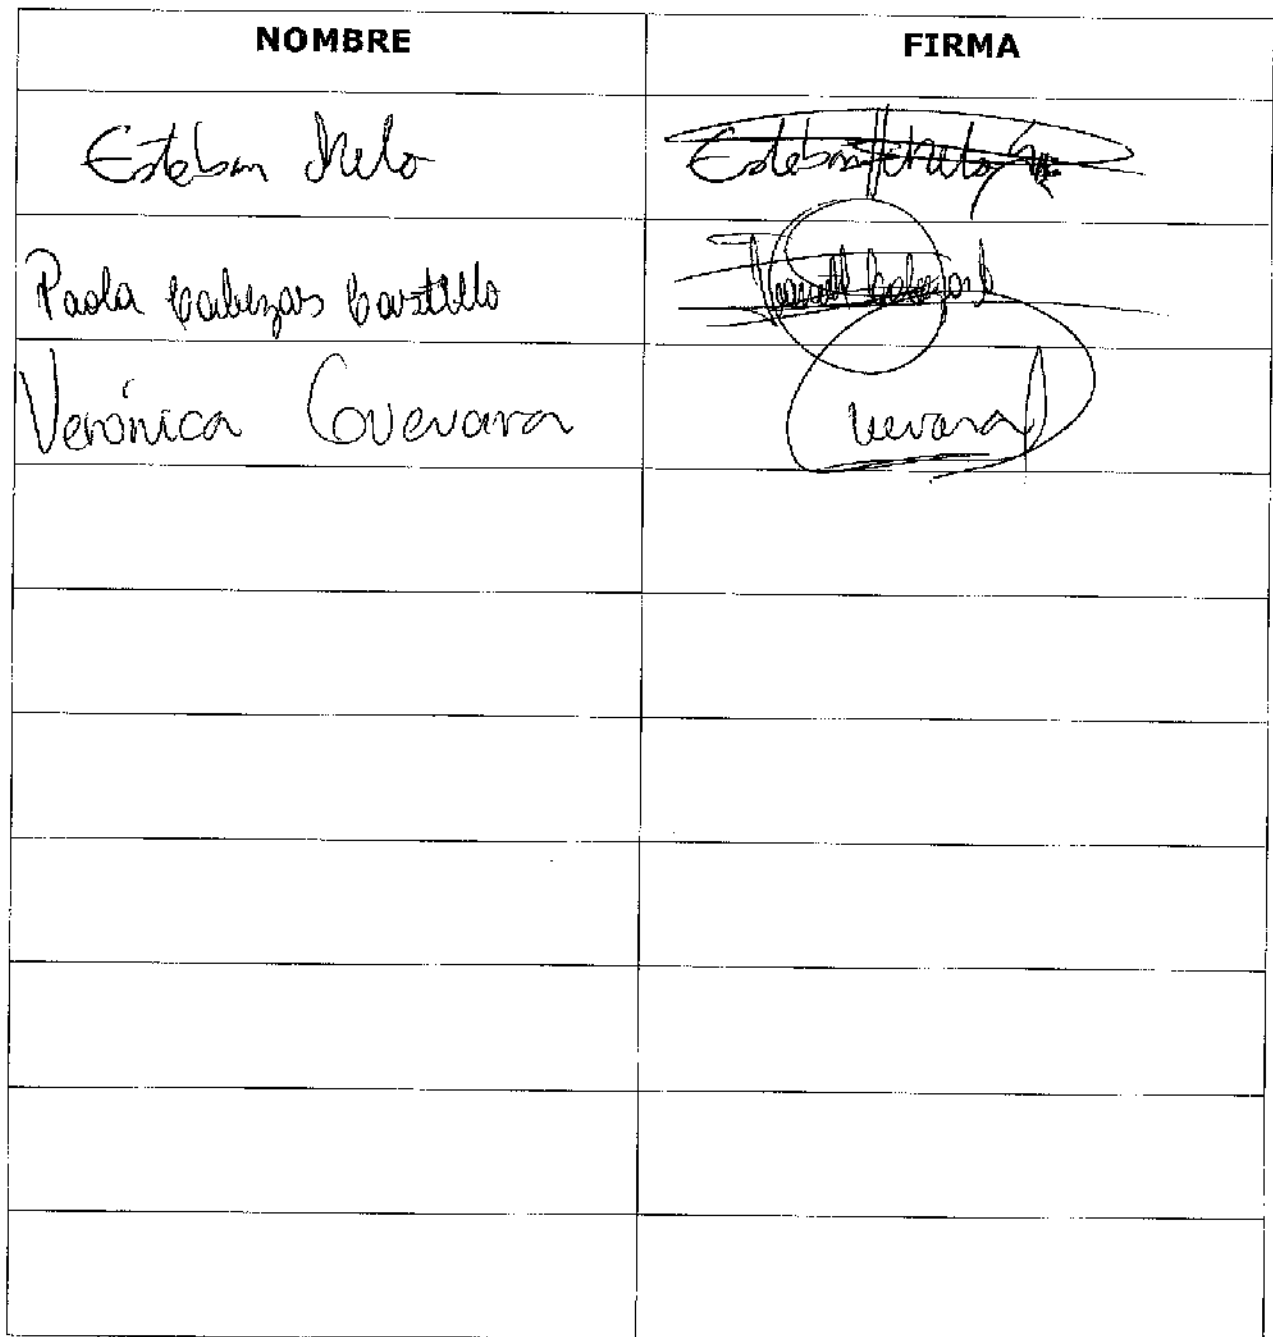 NOMBRE FIRMA
Esteban Melo Esteban Melo
Paola Cabezas Castillo
Verónica Guevara Guevara